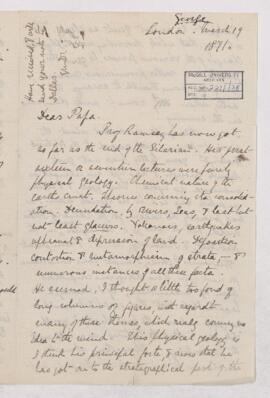 George
London March 19
1871.
Have received Papa
send your note to
Dallas.
McGILL UNIVERSITY
ARCHIVES
Dear Papa.
Prof Ramsay has now got
as far as the end of the Silurian. His first
sixteen or seventeen lectures were purely
physical geology. Chemical nature of the
earth's crust. Theories concerning its consolid-
ation. Denudation, by Rivers, Seas, & last but
not least glaciers. Volcanoes, earthquakes
upheaval & depression of land. Deposition
contortion & metamorphism of strata, — &
numerous instances of all these facts.
He seemed, I thought a little too fond of
long columns of figures, with regard to
many of these things, which really convey no
idea to the mind. This physical geology is
I think his principal forte, & now that he
has got on to the stratigraphical part of the